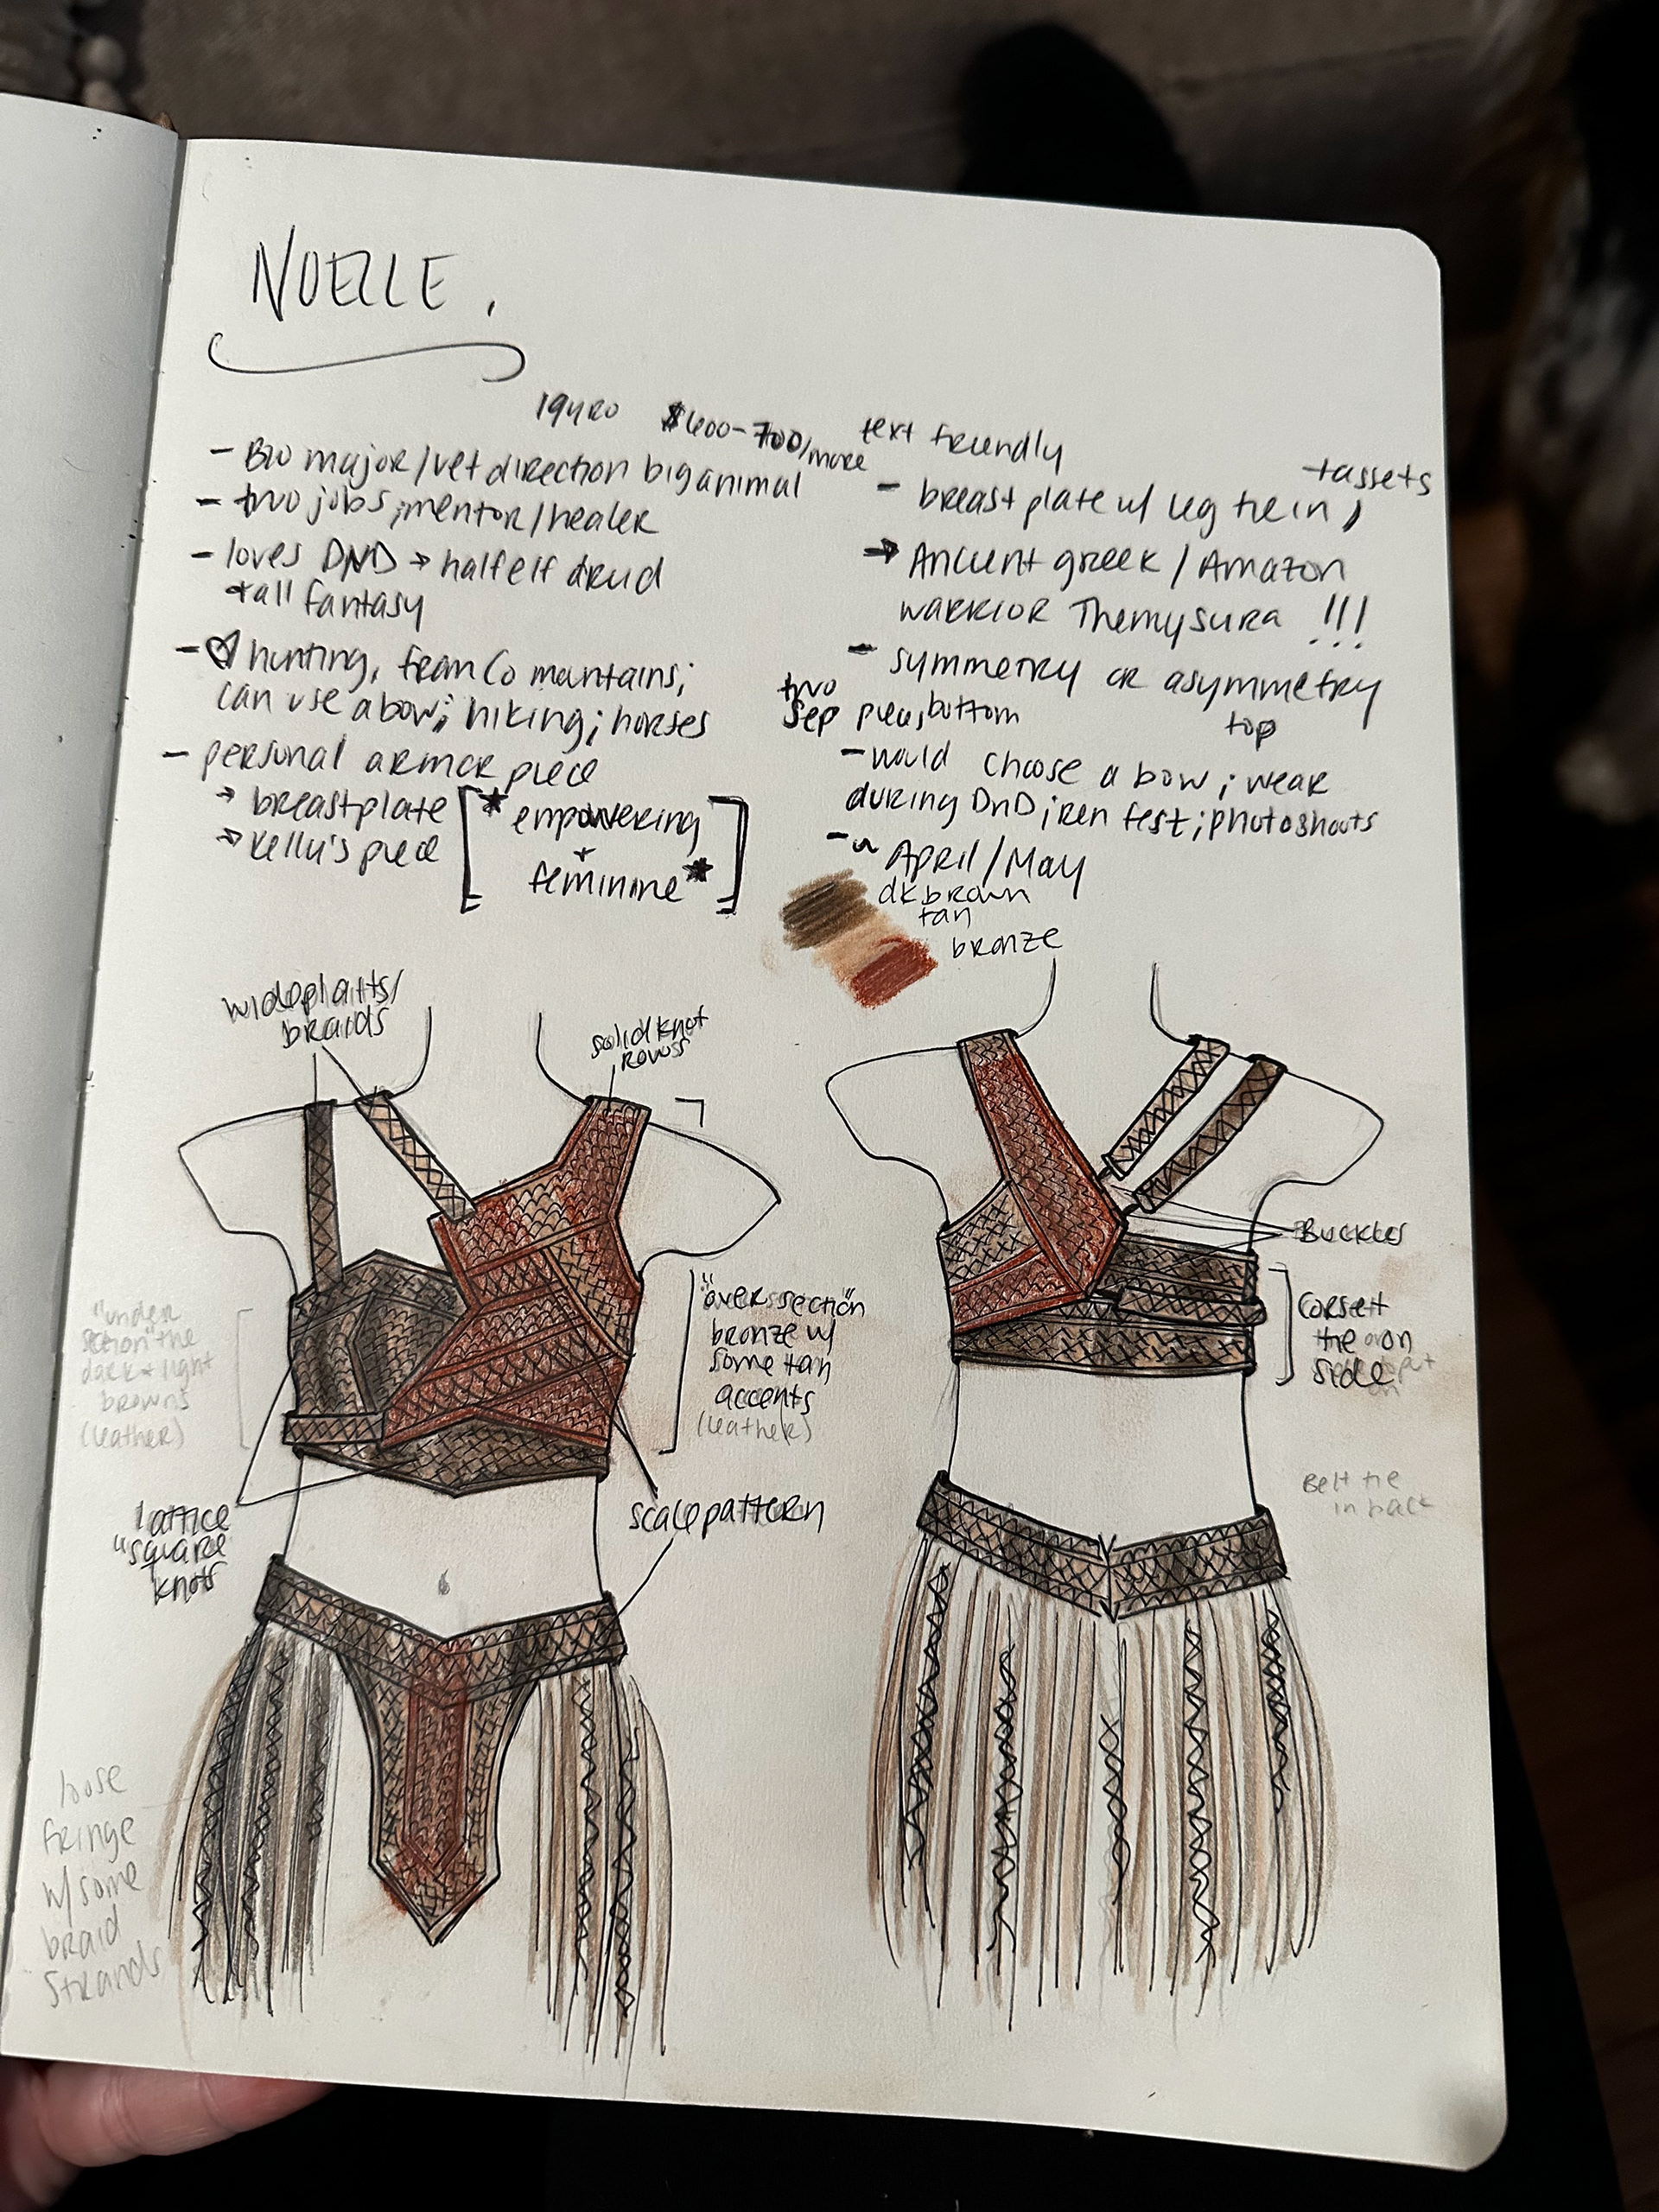 NOELLE.
19yRO $600-700/more text friendly
- Bio major/vet direction big animal
- two jobs; mentor/healer
- loves DND → half elf druid
+ all fantasy
- ♡ hunting, from Co mountains;
can use a bow; hiking; horses
- personal armor piece
→ breastplate
→ Kelly's piece
[* empowering
+
feminine *]
tassets
- breast plate w/ leg tie in,
→ Ancient greek / Amazon
warrior Themyscira !!!
- symmetry or asymmetry
two
sep piece, bottom
top
- would choose a bow; wear
during DnD; ren fest; photoshoots
- ~ April/May
dk brown
tan
bronze
wide plaits/
braids
solid knot
rows
"under
section" the
dark + light
browns
(leather)
"over section"
bronze w/
some tan
accents
(leather)
Buckles
corsett
tie on
side
lattice
"square
knots
scale pattern
Belt tie
in back
loose
fringe
w/ some
braid
strands